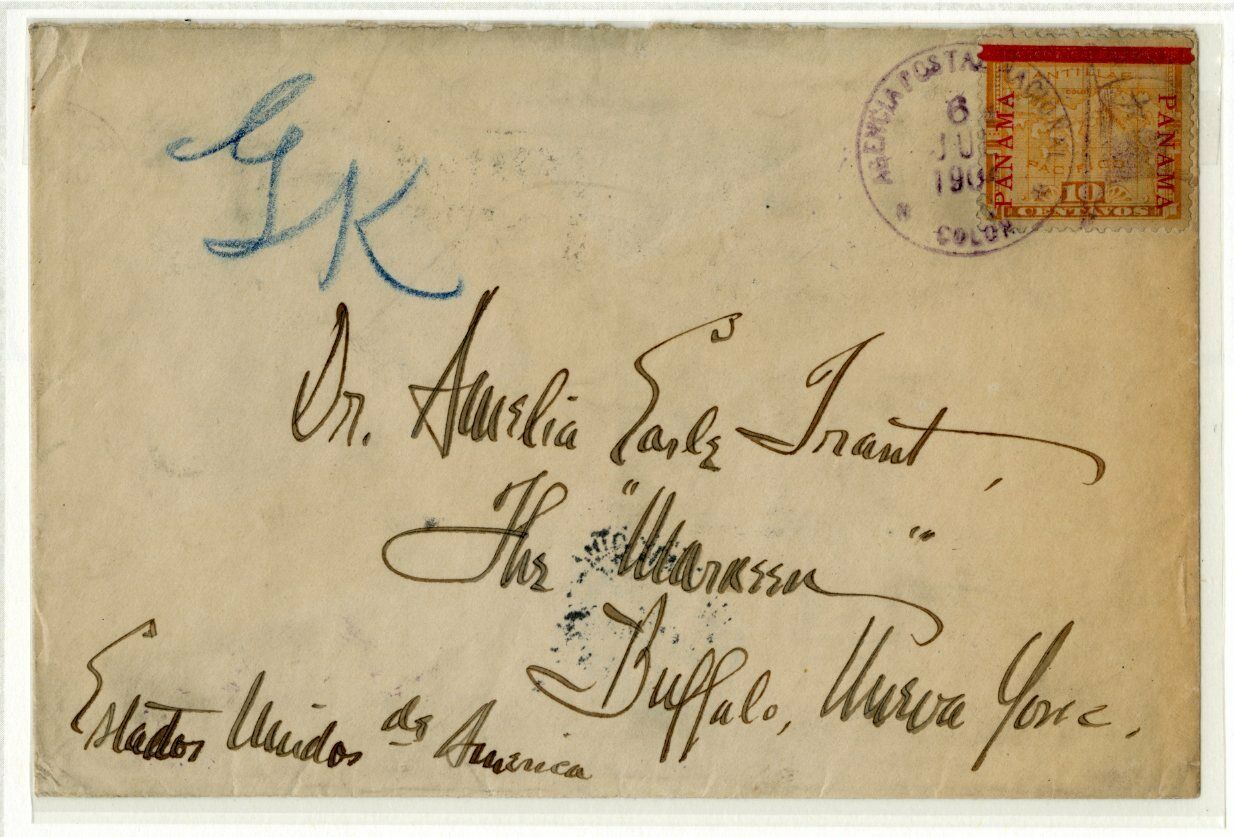 GK
AGENCIA POSTAL NACIONAL
6
1904
COLON
ANTILLAS
PANAMA
PANAMA
10
CENTAVOS
Dr. Amelia Earle Trant,
The "Marneen"
Buffalo, Nueva York.
Estados Unidos de America